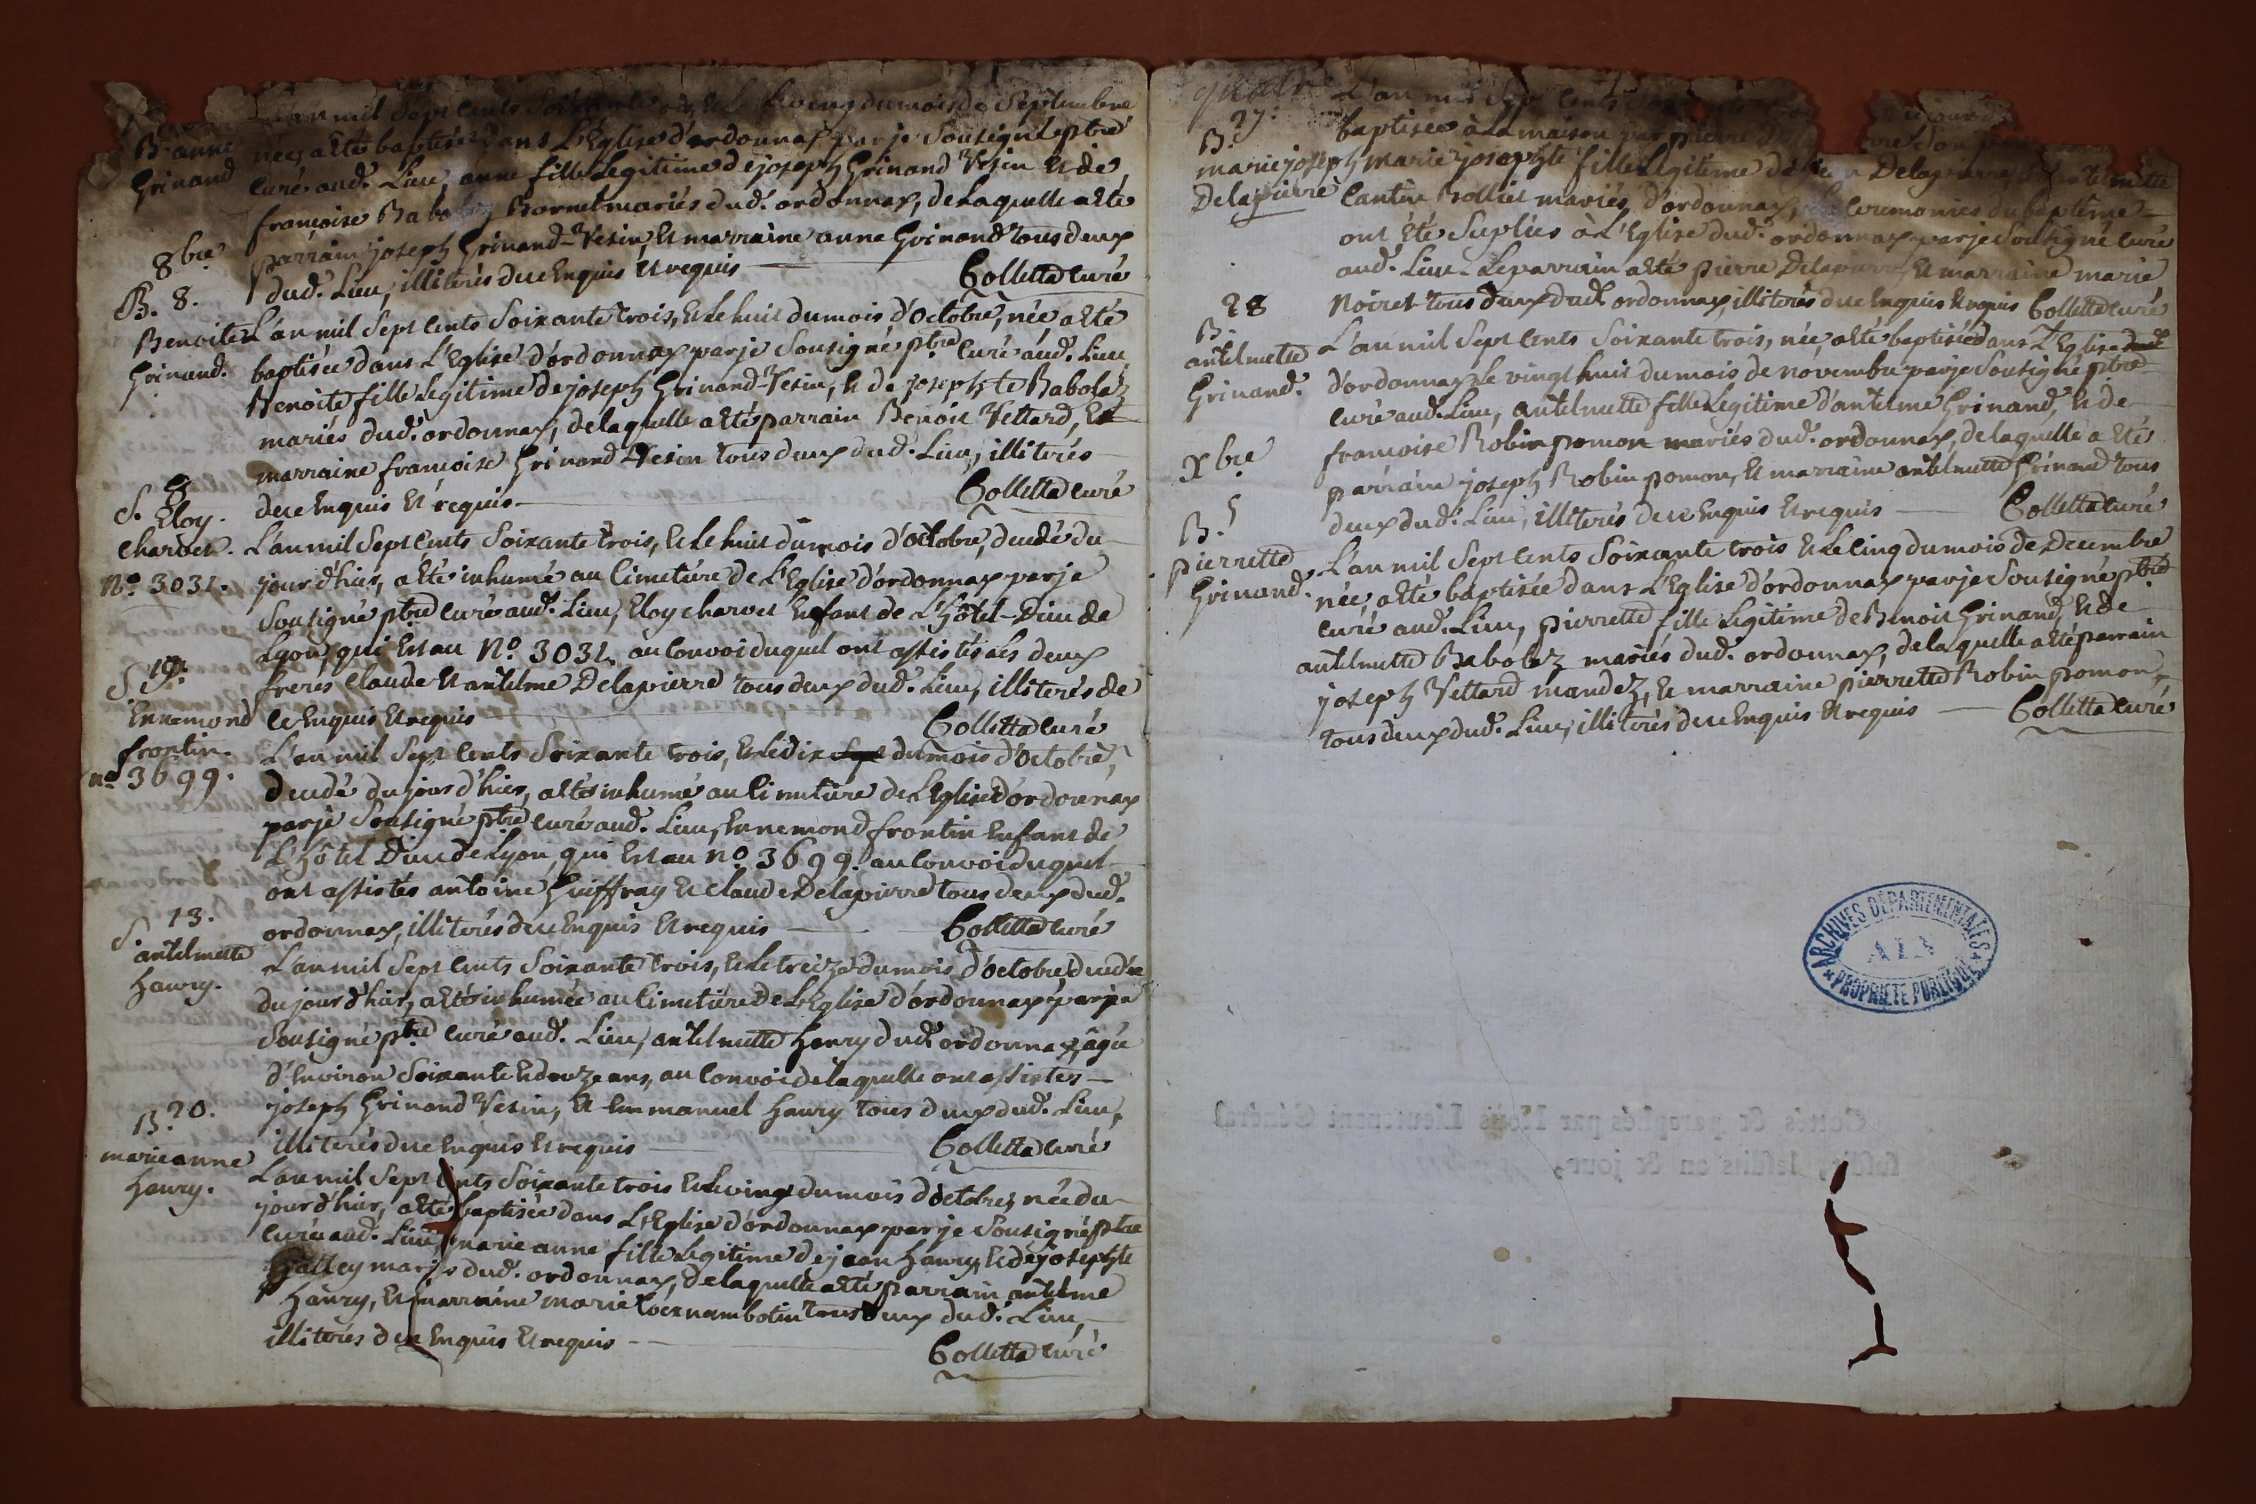 L'an mil Sept Cents Soixante trois, Et Le vingt du mois de Septembre
B. anne
Grinand
née, a été baptisée dans L'Eglise d'ordonnax par je Soussigné ptre
Curé aud. Lieu, anne fille Legitime de joseph Grinand Vesin Et de
françoise Babolaz Bornet mariés dud. ordonnax, de Laquelle a Eté
parrain joseph Grinand-Vesin, Et marraine anne Grinand tous deux
dud. Lieu, illiterés de ce Enquis Et requis
Colletta Curé
8bre
B. 8.
Benoite
Grinand.
L'an mil Sept Cents Soixante trois, Et Le huit du mois d'octobre, née a Eté
baptisée dans L'Eglise d'ordonnax par je Sousigné ptre Curé aud. Lieu
Benoite fille Legitime de joseph Grinand-Vesin, Et de josephte Babolaz
mariés dud. ordonnax, de laquelle a Eté parrain Benoit Vettard, Et
marraine francoise Grinand Vesin tous deux dud. Lieu, illiterés
de ce Enquis Et requis
Colletta Curé
S. 8
Eloy
Charvet.
No. 3031.
L'an mil Sept Cents Soixante trois, Et Le huit du mois d'octobre, decedé du
jour d'hier, a Eté inhumé au Cimetiere de L'Eglise d'ordonnax par je
Sousigné ptre Curé aud. Lieu, Eloy charvet Enfant de L'hôtel-Dieu de
Lyon, qui Est au No. 3031. au Convoi duquel ont assistés les deux
freres Claude Et antelme Delapierre tous deux dud. Lieu, illiterés de
ce Enquis Et requis
Colletta Curé
S. 19.
Ennemond
frontin.
no. 3699.
L'an mil Sept Cents Soixante trois, Et Le dix du mois d'octobre,
decedé du jour d'hier, a Eté inhumé au Cimetiere de L'Eglise d'ordonnax
par je Sousigné ptre Curé aud. Lieu, Ennemond frontin Enfant de
L'hôtel Dieu de Lyon, qui Est au No. 3699. au Convoi duquel
ont assistés antoine Guiffray Et Claude Delapierre tous deux dud.
ordonnax, illiterés de ce Enquis Et requis
Colletta Curé
S. 13.
antelmette
haury.
L'an mil Sept Cents Soixante trois, Et Le treize du mois d'octobre decedée
du jour d'hier, a Eté inhumée au Cimetiere de L'Eglise d'ordonnax par je
Sousigné ptre Curé aud. Lieu, antelmette haury dud. ordonnax, âgée
d'Environ Soixante Et douze ans, au Convoi de laquelle ont assistes
joseph Grinand Vesin, Et Emmanuel haury tous deux dud. Lieu,
illiterés de ce Enquis Et requis
Colletta Curé
B. 20.
marie anne
haury.
L'an mil Sept Cents Soixante trois Et Le vingt du mois d'octobre, née du
jour d'hier, a Eté baptisée dans L'Eglise d'ordonnax par je Sousigné ptre
Curé aud. Lieu, marie anne fille Legitime de jean haury, Et de josephte
mariés dud. ordonnax, de laquelle a Eté parrain antelme
haury, Et marraine marie tous deux dud. Lieu,
illiterés de ce Enquis Et requis
Colletta Curé
quatre
27.
B.
marie joseph
Delapierre
L'an mil Sept Cents
baptisée à La maison par pierre
marie josephte fille Legitime de Delapierre
Cantin Rollet mariés d'ordonnax, les Ceremonies du baptême
ont Eté Suplées à L'Eglise dud. ordonnax par je Sousigné Curé
aud. Lieu. Le parrain a Eté pierre Delapierre, Et marraine marie
Noiret tous deux dud. ordonnax, illiterés de ce Enquis Et requis Colletta Curé
28
B.
antelmette
Grinand.
L'an mil Sept Cents Soixante trois, née, a Eté baptisée dans L'Eglise
d'ordonnax Le vingt huit du mois de novembre par je Sousigné ptre
Curé aud. Lieu, antelmette fille Legitime d'antelme Grinand, Et de
francoise Robin pomon mariés dud. ordonnax, de laquelle a Eté
parrain joseph Robin pomon, Et marraine antelmette Grinand tous
deux dud. Lieu, illiterés de ce Enquis Et requis
Colletta Curé
xbre
5
B.
pierrette
Grinand.
L'an mil Sept Cents Soixante trois Et Le Cinq du mois de Decembre
née, a Eté baptisée dans L'Eglise d'ordonnax par je Sousigné ptre
Curé aud. Lieu, pierrette fille Legitime de Benoit Grinand, Et de
antelmette Babolaz mariés dud. ordonnax, de laquelle a Eté parrain
joseph Vettard mandez, Et marraine pierrette Robin pomon,
tous deux dud. Lieu, illiterés de ce Enquis Et requis
Colletta Curé
ARCHIVES DÉPARTEMENTALES
AIN
PROPRIÉTÉ PUBLIQUE